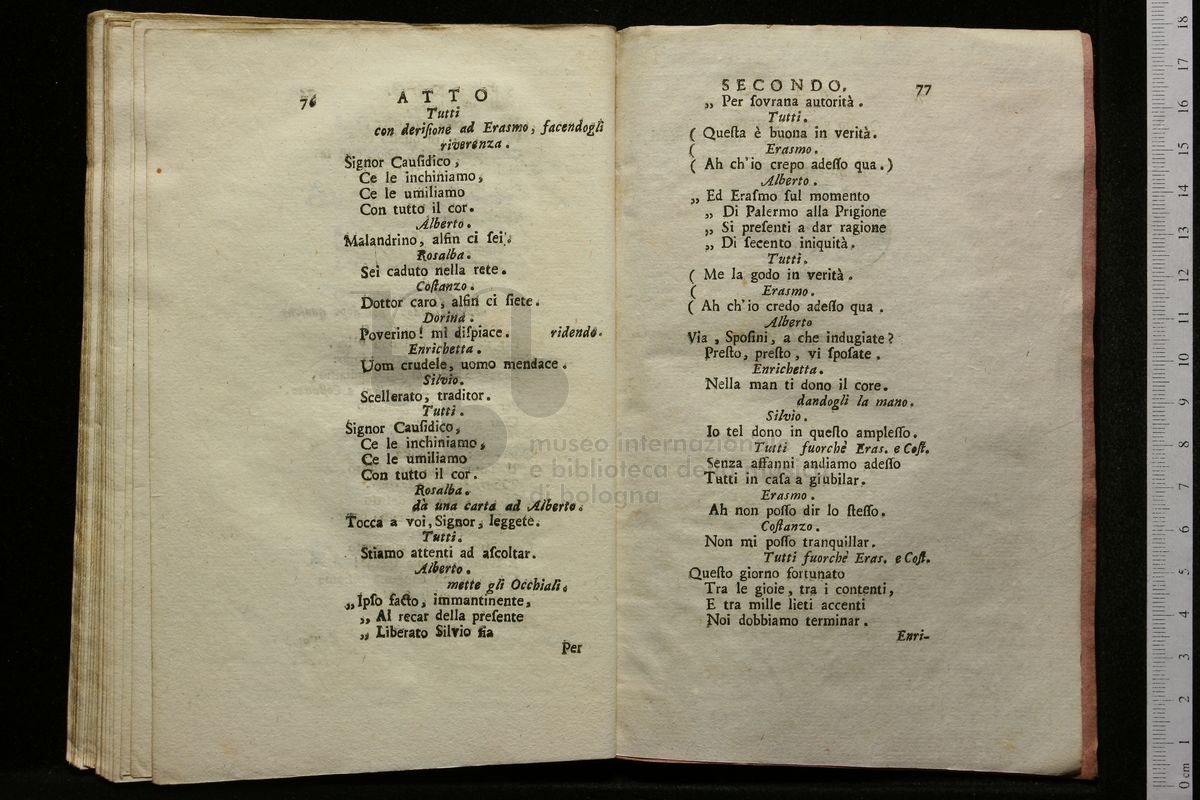 76
ATTO
Tutti
con deriſione ad Erasmo, facendogli
riverenza.
Signor Cauſidico,
Ce le inchiniamo,
Ce le umiliamo
Con tutto il cor.
Alberto.
Malandrino, alfin ci ſei.
Rosalba.
Sei caduto nella rete.
Coſtanzo.
Dottor caro, alfin ci ſiete.
Dorina.
Poverino! mi diſpiace. ridendo.
Enrichetta.
Uom crudele, uomo mendace.
Silvio.
Scellerato, traditor.
Tutti.
Signor Cauſidico,
Ce le inchiniamo,
Ce le umiliamo
Con tutto il cor.
Rosalba.
dà una carta ad Alberto.
Tocca a voi, Signor, leggete.
Tutti.
Stiamo attenti ad aſcoltar.
Alberto.
mette gli Occhiali.
„Ipſo facto, immantinente,
„ Al recar della preſente
„ Liberato Silvio ſia
Per
SECONDO.
77
„ Per ſovrana autorità.
Tutti.
( Queſta è buona in verità.
( Erasmo.
( Ah ch'io crepo adeſſo qua.)
Alberto.
„ Ed Eraſmo ſul momento
„ Di Palermo alla Prigione
„ Si preſenti a dar ragione
„ Di ſecento iniquità.
Tutti.
( Me la godo in verità.
( Erasmo.
( Ah ch'io credo adeſſo qua.
Alberto
Via, Spoſini, a che indugiate?
Preſto, preſto, vi ſpoſate.
Enrichetta.
Nella man ti dono il core.
dandogli la mano.
Silvio.
Io tel dono in queſto ampleſſo.
Tutti fuorchè Eras. e Coſt.
Senza affanni andiamo adeſſo
Tutti in caſa a giubilar.
Erasmo.
Ah non poſſo dir lo ſteſſo.
Coſtanzo.
Non mi poſſo tranquillar.
Tutti fuorchè Eras. e Coſt.
Queſto giorno fortunato
Tra le gioie, tra i contenti,
E tra mille lieti accenti
Noi dobbiamo terminar.
Enri-
museo internazionale
e biblioteca della musica
di bologna
0 cm 1 2 3 4 5 6 7 8 9 10 11 12 13 14 15 16 17 18